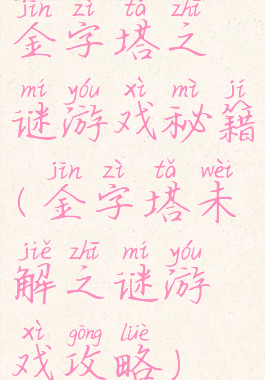 jīn zì tǎ zhī
金字塔之
mí yóu xì mì jí
谜游戏秘籍
jīn zì tǎ wèi
(金字塔未
jiě zhī mí yóu
解之谜游
xì gōng lüè
戏攻略)